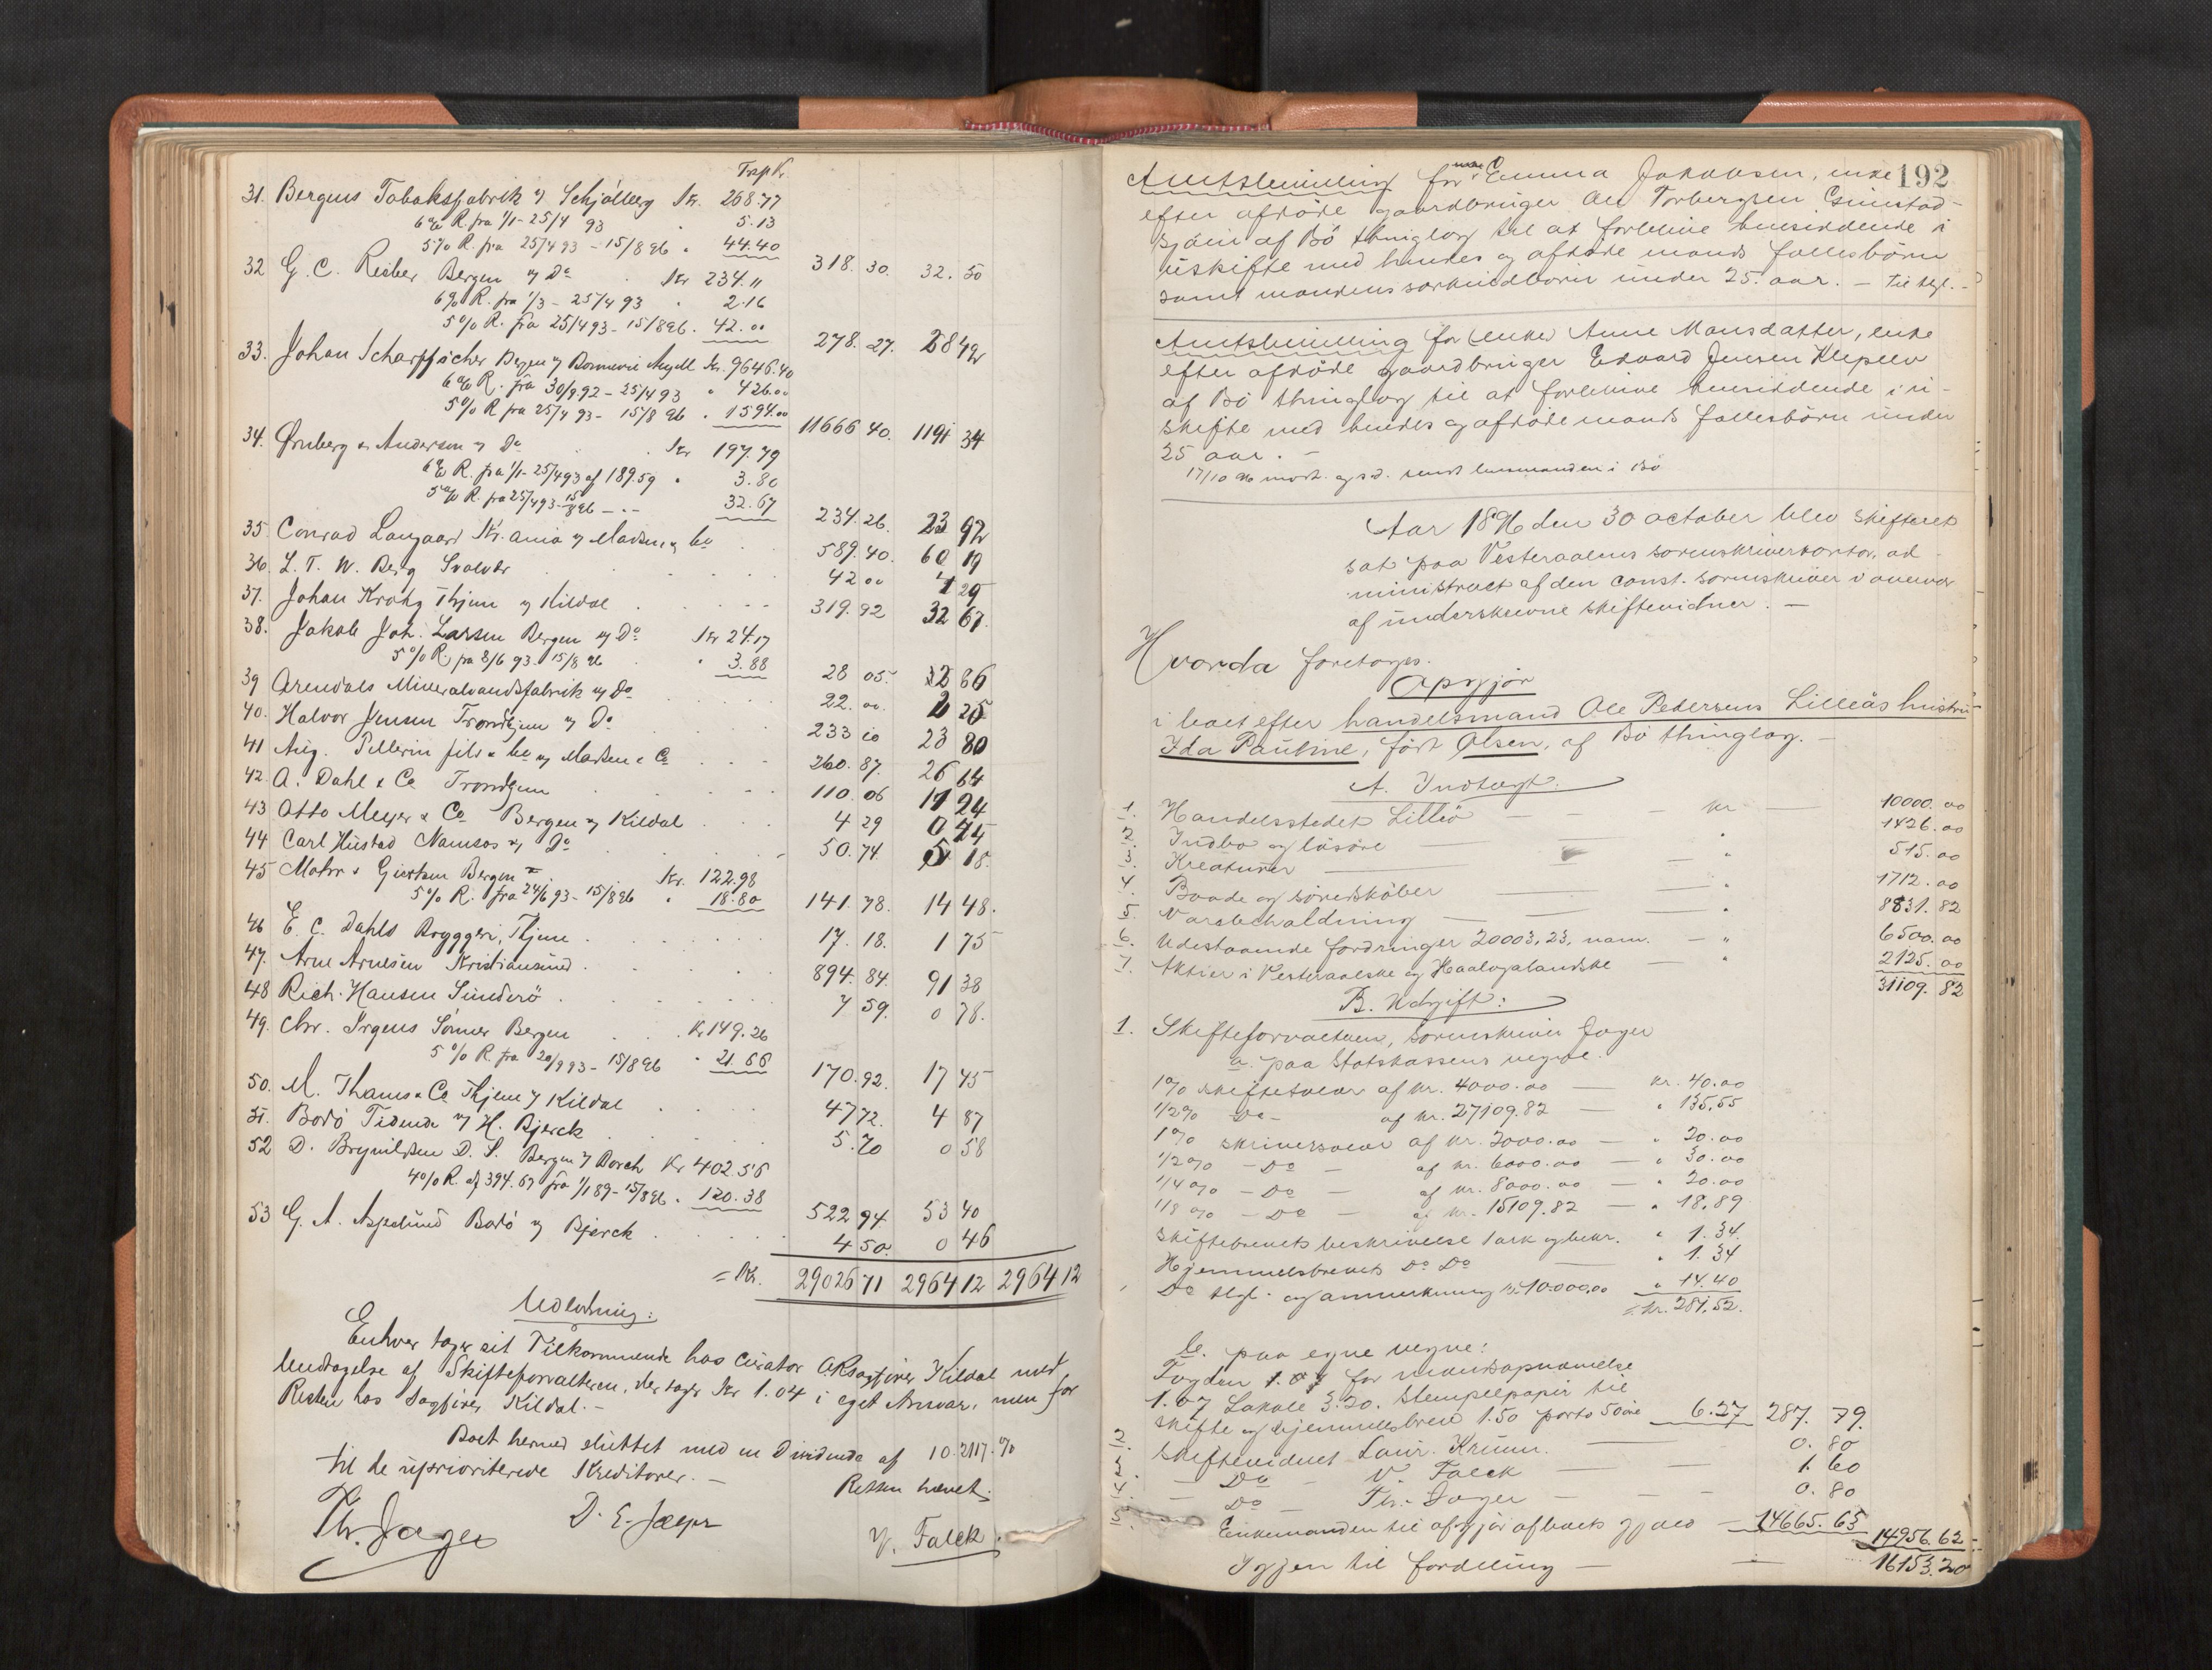 Trsp. Kr.
31. Bergens Tobaksfabrik v/ Schjölberg Kr. 268.77
6% R. fra 1/1 - 25/4 93 " 5.13
5% R. fra 25/4 93 - 15/8 96 " 44.40 318. 30. 32. 50
32 G. C. Rieber Bergen v/ Do Kr 234.11
6% R. fra 1/3 - 25/4 93 " 2.16
5% R. fra 25/4 93 - 15/8 96 . 42.00 278. 27. 28 42
33. Johan Scharffscher Bergen v/ Kr. 9646.40
6% R. fra 30/9 92 - 25/4 93 " 426.00
5% R fra 25/4 93 - 15/8 96 . 1594.00 11666 40. 1191 34
34. Ørnberg & Andersen v/ Do Kr 197.79
6% R. fra 1/1 - 25/4 93 af 189.59 " 3.80
5% R. fra 25/4 93 - 15/8 96 - . - 32.67 234. 26. 23 92
35 Conrad Langaard Kr.ania v/ Madsen & Co 589. 40. 60 19
36. L. T. W. Berg Svolvær 42 00 4 29
37. Johan Krohg Thjem v/ Kildal 319. 92 32 67.
38. Jakob Joh. Larsen Bergen v/ Do Kr 24.17
5% R. fra 8/6 93 - 15/8 96 " 3.88 28 05. 2 86
39 Arendals Mineralvandsfabrik v/ Do 22. 00. 2 25
40. Halvor Jensen Trondhjem v/ Do 233 10 23 80
41 Aug. Pellerin fils & Co v/ Madsen & Co 260. 87. 26 64
42. A. Dahl & Co Trondhjem 110. 06 11 24
43 Otto Meyer & Co Bergen v/ Kildal 4 29 0 45
44 Carl Hustad Namsos v/ Do 50. 74. 5 18.
45 Mohr & Giertsen Bergen Kr. 122.98
5% R. fra 24/6 93 - 15/8 96 " 18.80 141. 78. 14 48.
46 E. C. Dahls Bryggeri, Thjem 17. 18. 1 75
47. Arne Arnesen Kristiansund 894. 84. 91 38
48 Rich. Hansen Sunderö 7 59. 0 78.
49. Chr. Irgens Sönner Bergen Kr 149.26
5% R. fra 20/9 93 - 15/8 96 " 21.66 170. 92. 17 45
50. M. Thams & Co Thjem v/ Kildal 47 72. 4 87
51. Bodö Tidende v/ H. Bjerck 5. 70 0 58
52 D. Brynildsen D. S. Bergen v/ Borch Kr 402.56
4% R. af 394.67 fra 1/1 89 - 15/8 96 . 120.38 522 94 53 40
53 G. A. Asplund Bodö v/ Bjerck 4 50. 0 46
= Kr. 29026 71 2964 12 2964 12
Udlodning:
Enhver tager sit Tilkommende hos Curator ORsagfører Kildal med
Undtagelse af Skifteforvalteren, der tager Kr 1.04 i eget Ansvar, men for
Resten hos Sagfører Kildal. -
Boet hermed sluttet med en Dividende af 10.2117.%
til de uprioriterede Kreditorer. -
Retten hævet.
Th. Jæger D. E. Jæger V. Falck.
192
Amtsbevilling for Emma Jakobsen, enke
efter afdöde gaardbruger Ole Torbergsen Grimstad-
af Bö thinglag til at forblive hensiddende i
uskifte med hendes og afdöde mands fællesbörn
samt mandens særkuldbörn under 25 aar. - til tgl. -
Amtsbevilling for enke Anne Monsdatter, enke
efter afdöde gaardbruger Edvard Jensen Klepsev
af Bö thinglag til at forblive hensiddende i u-
skifte med hendes og afdöde mands fællesbörn under
25 aar. -
17/10 96 modt. og s.d. sendt lensmanden i Bö
Aar 1896 den 30 october blev skifteret
sat paa Vesteraalens sorenskriverkontor, ad-
ministreret af den const. sorenskriver i overvær
af underskrevne skiftevidner. -
Hvorda foretoges.
Opgjör
i boet efter handelsmand Ole Pedersens Lilleås hustru
Ida Pauline, född Olsen, af Bö thinglag. -
A. Indtægt:
1. Handelsstedet Lilleö kr 10000. 00
2. Indbo og lösöre " 1426. 00
3. Kreaturer " 515. 00
4. Baade og söredskaber " 1712. 00
5. Varebeholdning " 8831. 82
6. Udestaaende fordringer 20003,23, nom. " 6500. 00
7. Aktier i Vesteraalske og Haalogalandske " 2125. 00
31109. 82
B. Udgift:
1. Skifteforvalteren, sorenskriver Jæger
a. paa Statskassens vegne.
1% skiftesalær af kr. 4000.00 kr. 40.00
1/2% Do - af kr. 27109.82 " 135,55
1% skriversalær af kr. 2000.00 - " 20.00
1/2% - Do - af kr. 6000.00 - " 30.00
1/4% - Do - af kr. 8000.00 - " 20.00
1/8% - Do - af kr. 15109.82 - " 18,89
Skiftebrevets beskrivelse 1 ark og bekr. " 1.34.
Hjemmelsbrevets Do Do " 1.34
Do tlgl. og anmerkning kr. 10.000,00 " 14.40
= kr. 281,52.
b. paa egne vegne:
Fogden 1.07 for
1.07 Lokale 3.20. Stempelpapir til
skifte og hjemmelsbrev 1.50 porto 50 öre 6.27 287. 79.
2. Skiftevidnet Laur. Krumn. 0. 80
3. - Do - V. Falck 1. 60
4. - Do - Th. Jæger 0. 80
5. Enkemanden til afgjör af boets gjæld - 14665. 65 14956. 62 -
Igjen til fordeling - 16153.20